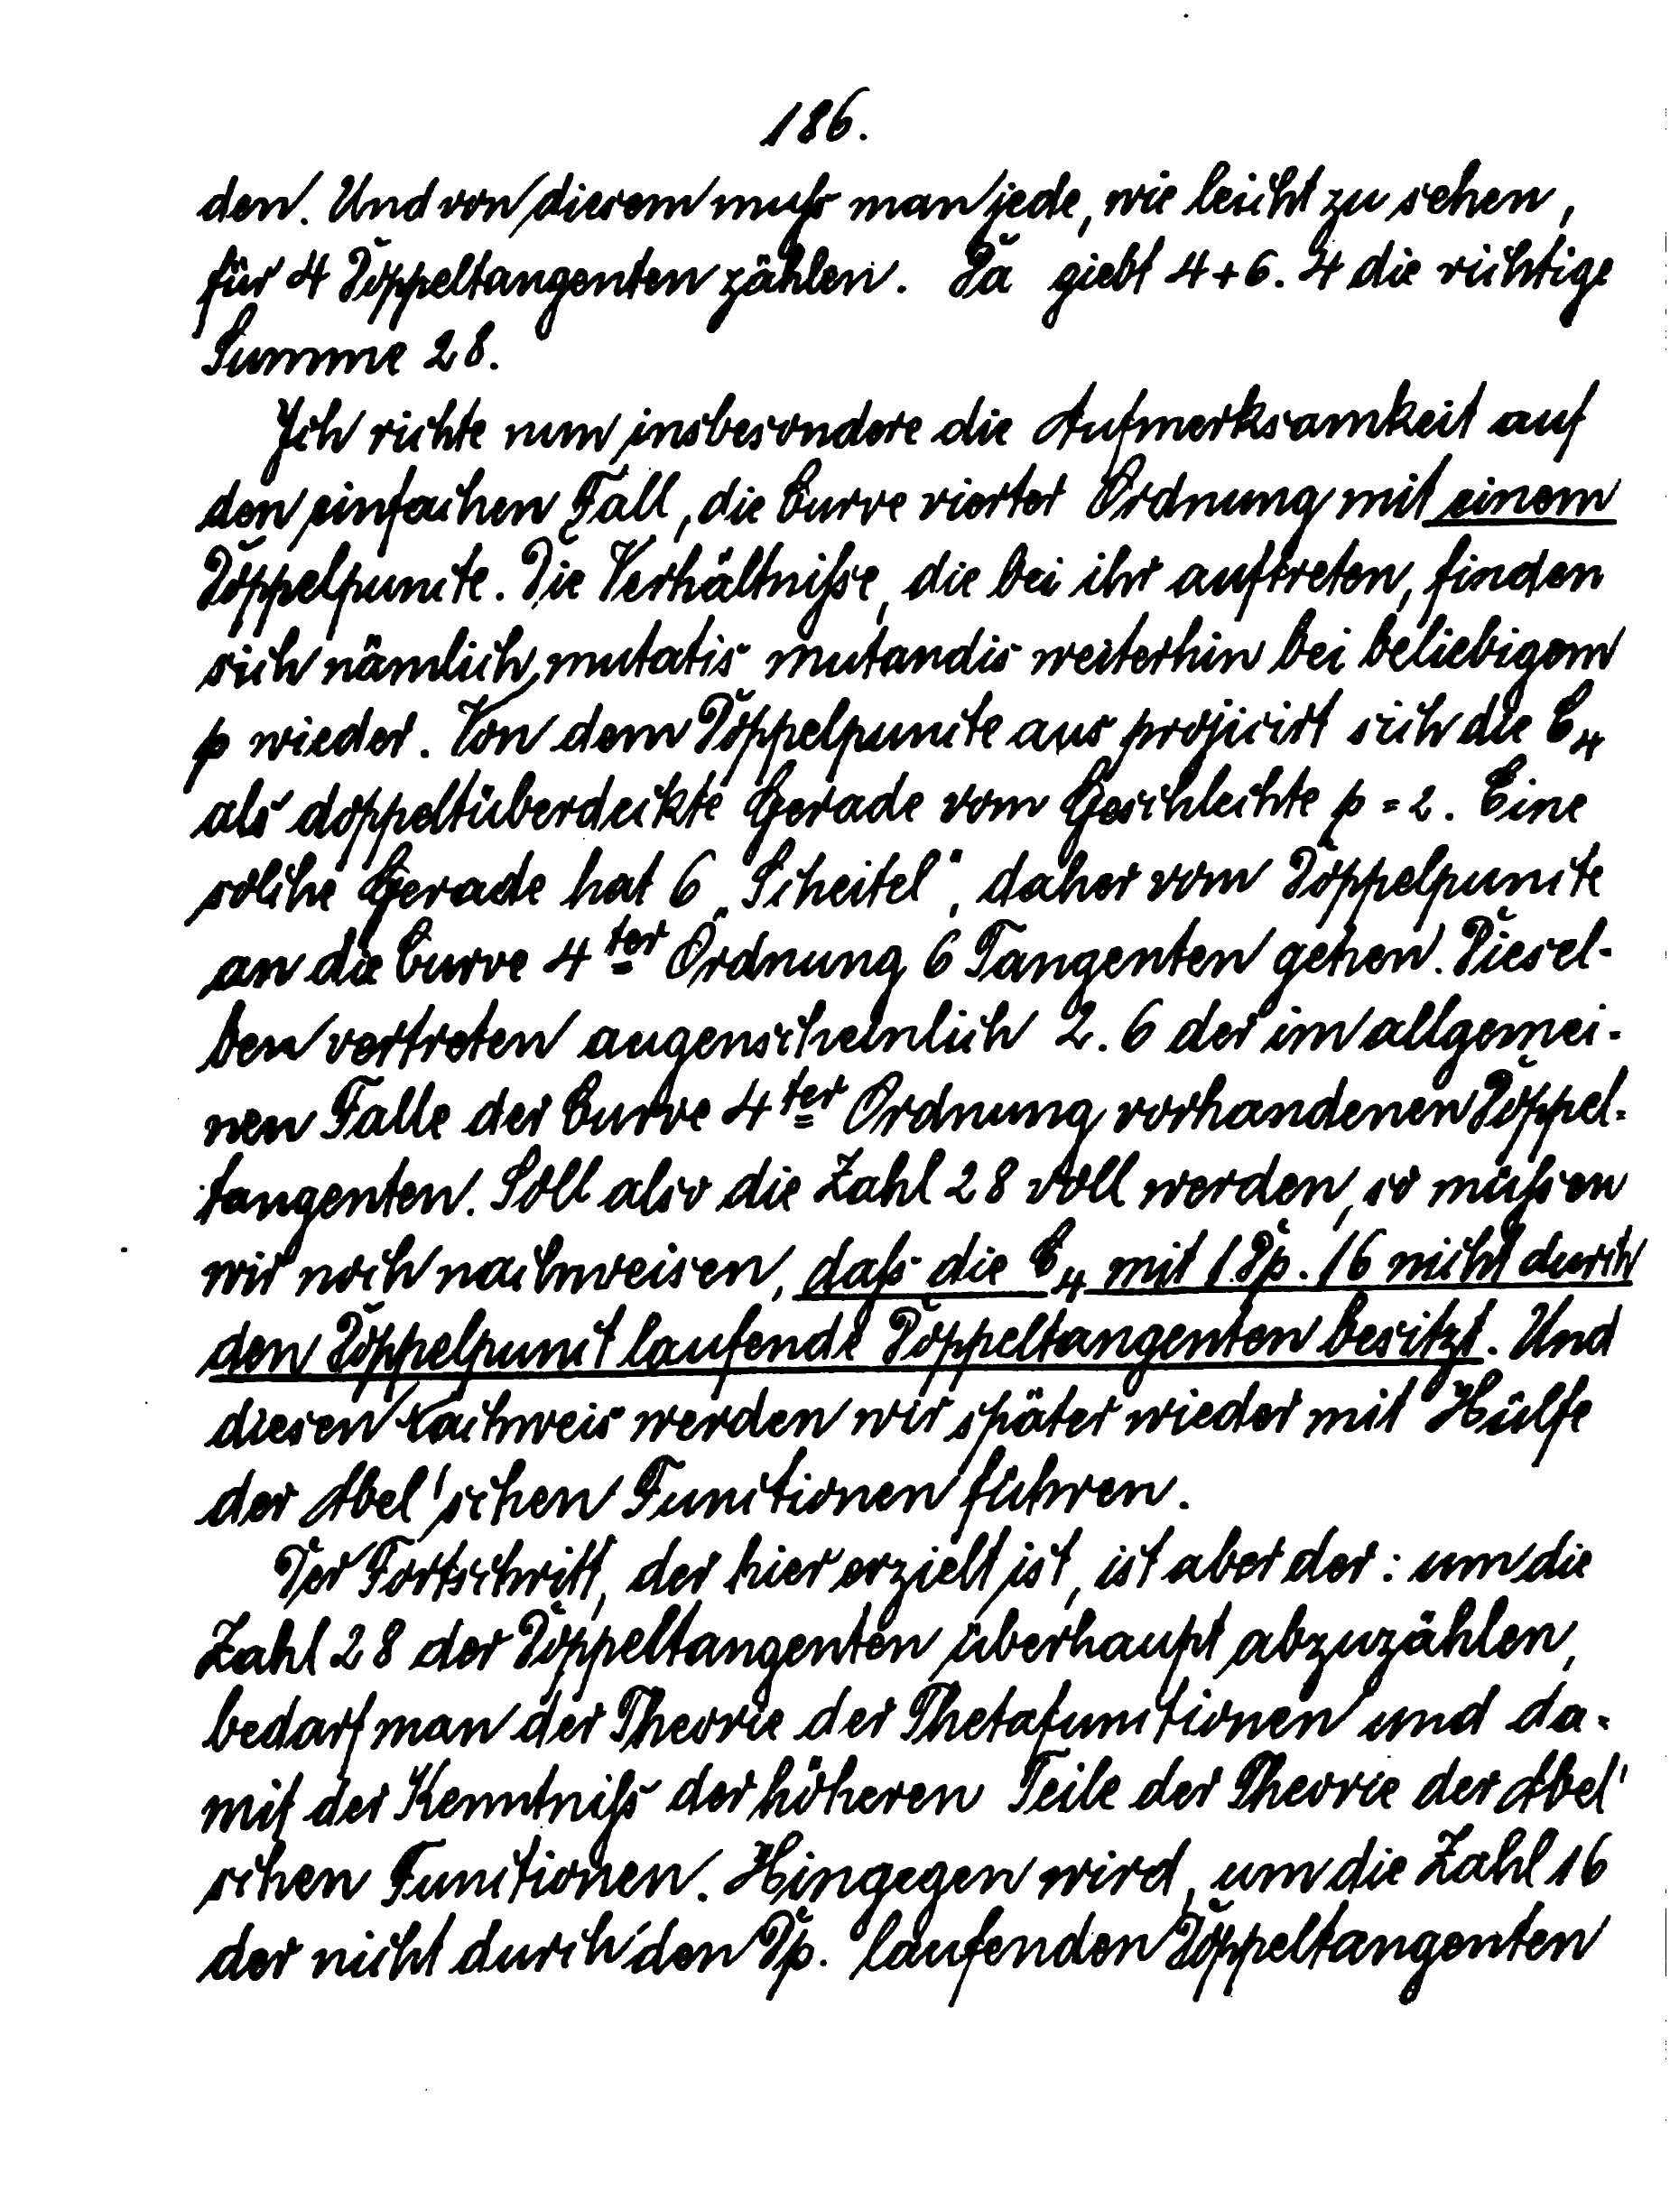 186.
den. Und von diesem muß man jede, wie leicht zu sehen,
für 4 Doppeltangenten zählen. Da giebt 4 + 6. 4 die richtige
Summe 28.
Ich richte nun insbesondere die Aufmerksamkeit auf
den einfachen Fall, die Curve vierter Ordnung mit einem
Doppelpuncte. Die Verhältniße, die bei ihr auftreten, finden
sich nämlich mutatis mutandis weiterhin bei beliebigem
p wieder. Von dem Doppelpuncte aus projicirt sich die C₄
als doppeltüberdeckte Gerade vom Geschlechte p = 2. Eine
solche Gerade hat 6 „Scheitel", daher vom Doppelpuncte
an die Curve 4ter Ordnung 6 Tangenten gehen. Diesel-
ben vertreten augenscheinlich 2. 6 der im allgemei-
nen Falle der Curve 4ter Ordnung vorhandenen Doppel-
tangenten. Soll also die Zahl 28 voll werden, so müßen
wir noch nachweisen, daß die C₄ mit 1 Dp. 16 nicht durch
den Doppelpunct laufende Doppeltangenten besitzt. Und
diesen Nachweis werden wir später wieder mit Hülfe
der Abel'schen Functionen führen.
Der Fortschritt, der hier erzielt ist, ist aber der: um die
Zahl 28 der Doppeltangenten überhaupt abzuzählen,
bedarf man der Theorie der Thetafunctionen und da-
mit der Kenntniß der höheren Teile der Theorie der Abel'
schen Functionen. Hingegen wird, um die Zahl 16
der nicht durch den Dp. laufenden Doppeltangenten